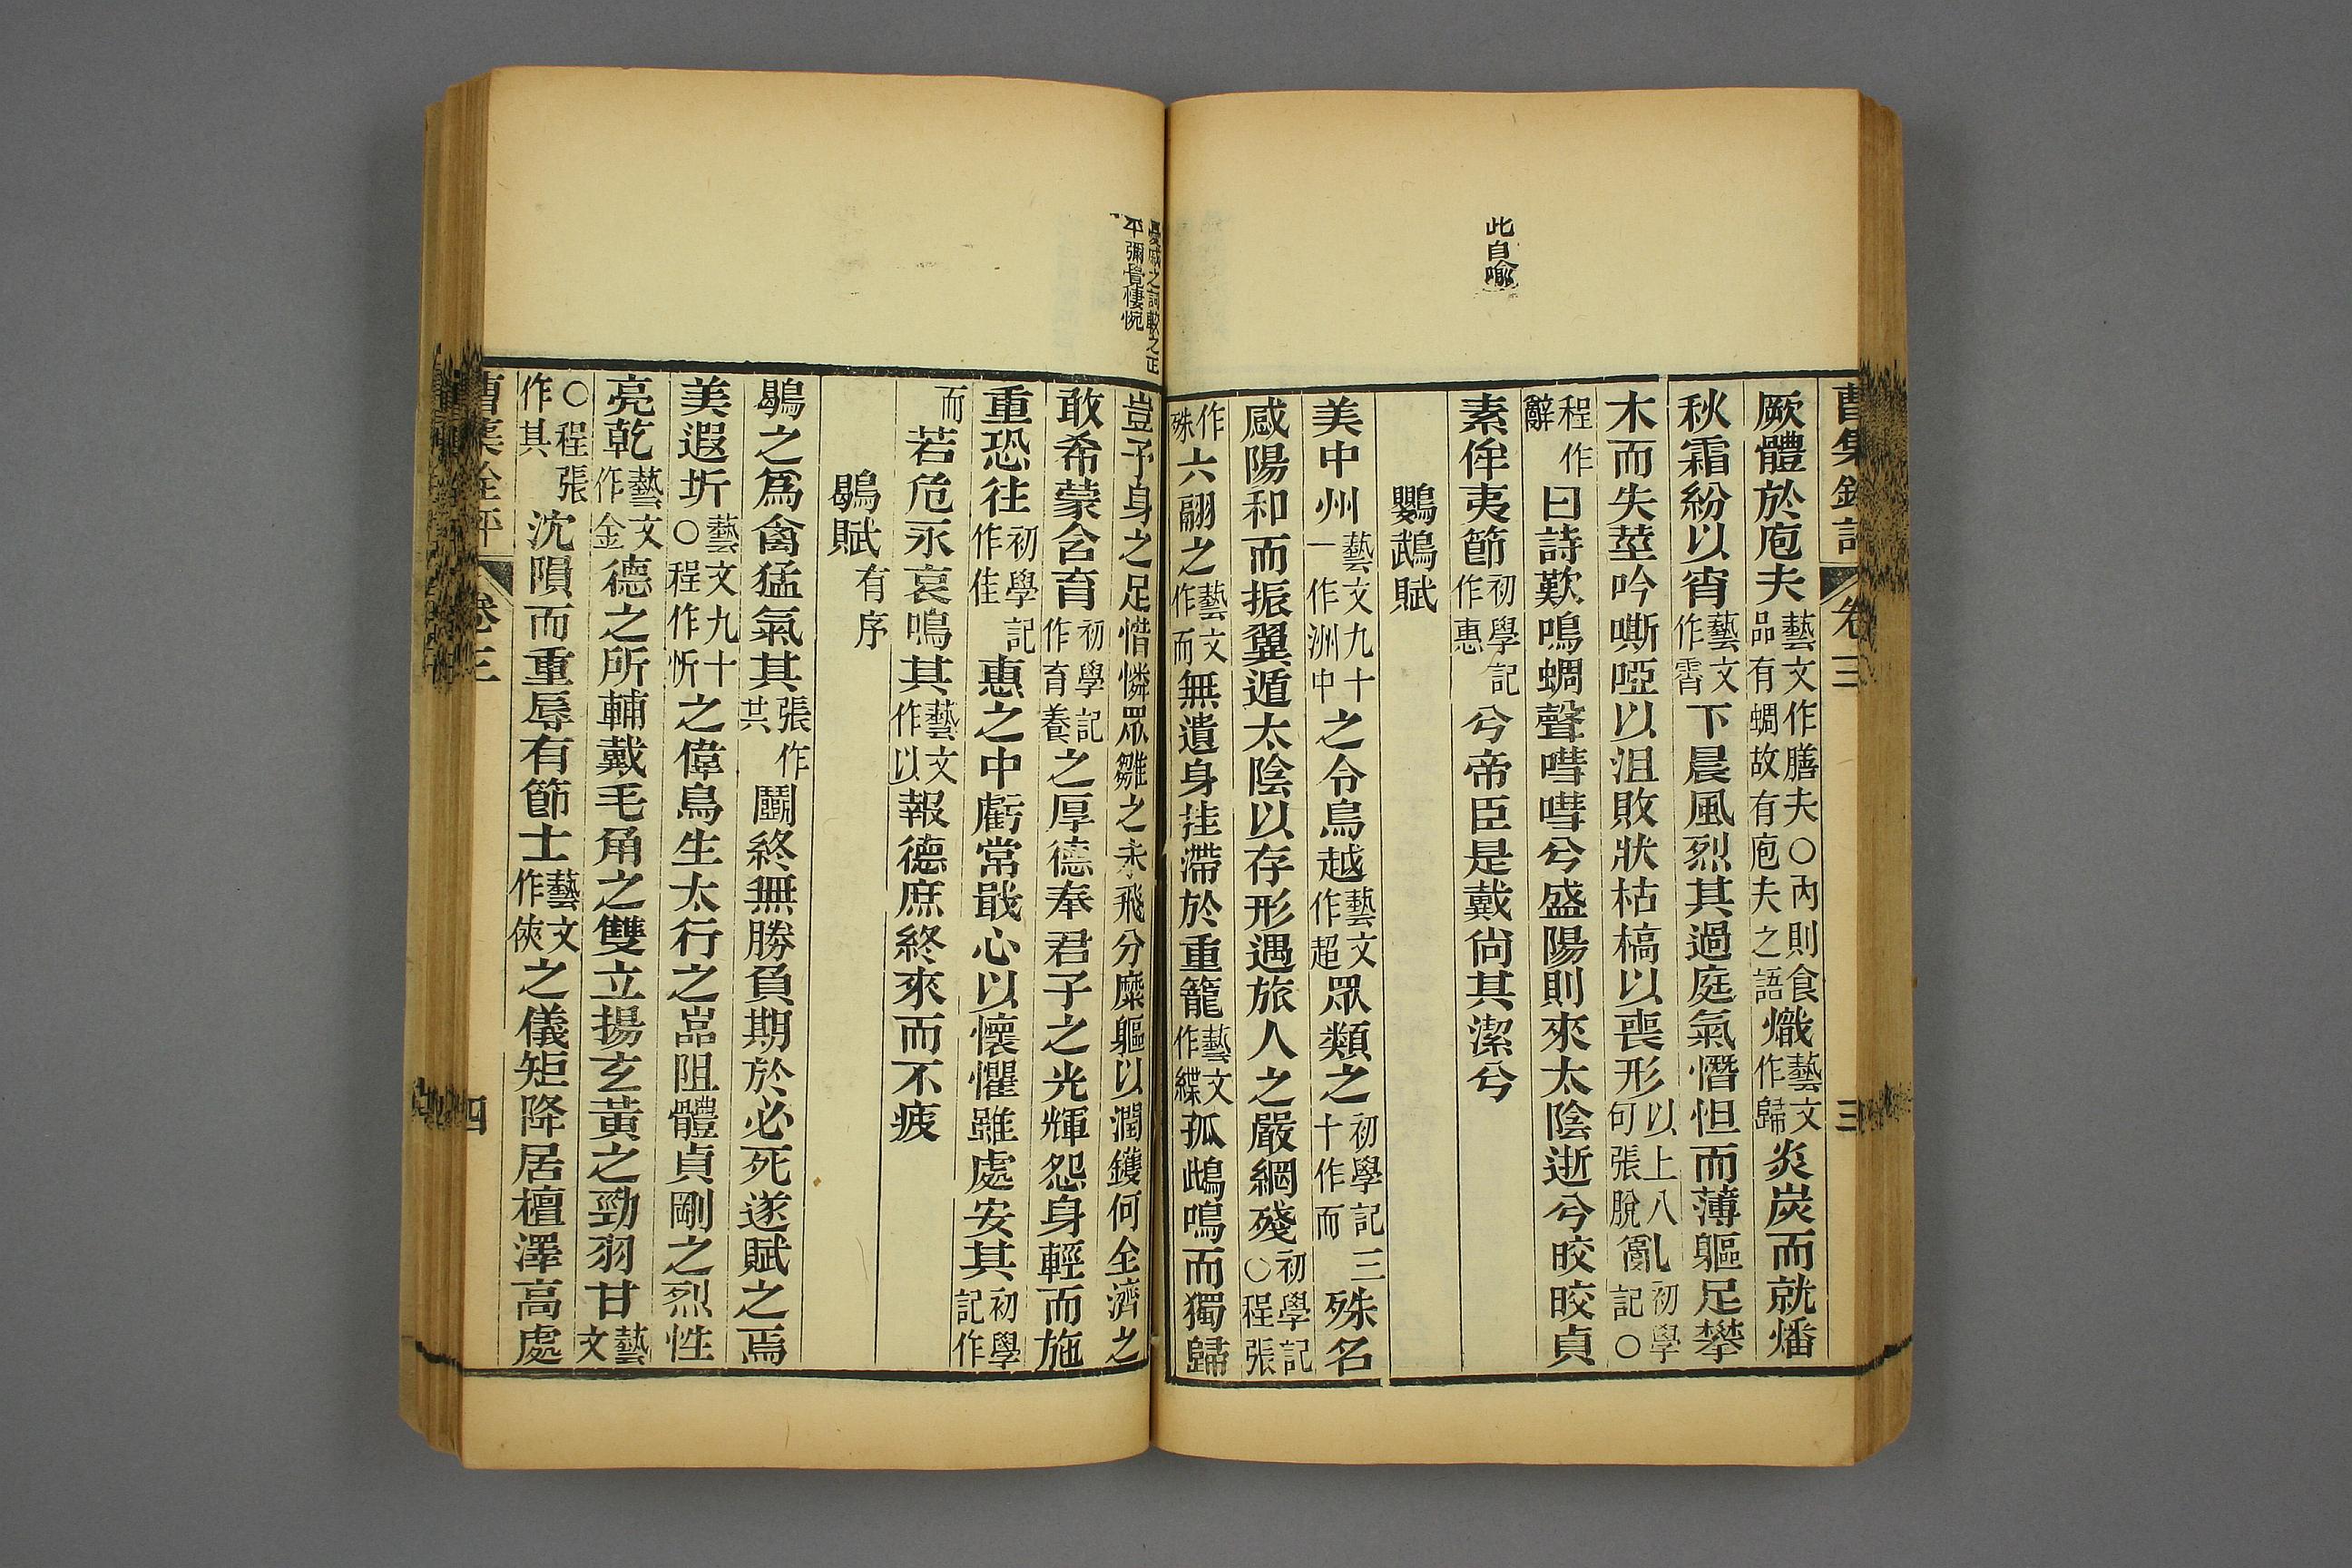 曹集銓評　卷三　三
厥體於庖夫藝文作膳夫○內則食品有蜩故有庖夫之語熾藝文作歸炎炭而就燔
秋霜紛以宵藝文作霄下晨風烈其過庭氣憯怛而薄軀足攀
木而失莖吟嘶啞以沮敗狀枯槁以喪形以上八句張脫亂初學記○
程作辭曰詩歎鳴蜩聲嘒嘒兮盛陽則來太陰逝兮皎皎貞
此自喻
素侔夷節初學記作惠兮帝臣是戴尚其潔兮
鸚鵡賦
美中州藝文九十一作洲中之令鳥越藝文作超眾類之初學記三十作而殊名
感陽和而振翼遁太陰以存形遇旅人之嚴網殘初學記○程張
作殊六翮之藝文作而無遺身挂滯於重籠藝文作緤孤雌鳴而獨歸
憂戚之詞較之正
平彌覺悽惋
豈予身之足惜憐眾雛之未飛分糜軀以潤鑊何全濟之
敢希蒙含育初學記作育養之厚德奉君子之光輝怨身輕而施
重恐往初學記作佳惠之中虧常戢心以懷懼雖處安其初學記作
而若危永哀鳴其藝文作以報德庶終來而不疲
鶡賦有序
鶡之為禽猛氣其張作共鬬終無勝負期於必死遂賦之焉
美遐圻藝文九十○程作忻之偉鳥生太行之嵓阻體貞剛之烈性
亮乾藝文作金德之所輔戴毛角之雙立揚玄黃之勁羽甘藝文
○程張作其沈隕而重辱有節士藝文作俠之儀矩降居檀澤高處
曹集銓評　卷三　四